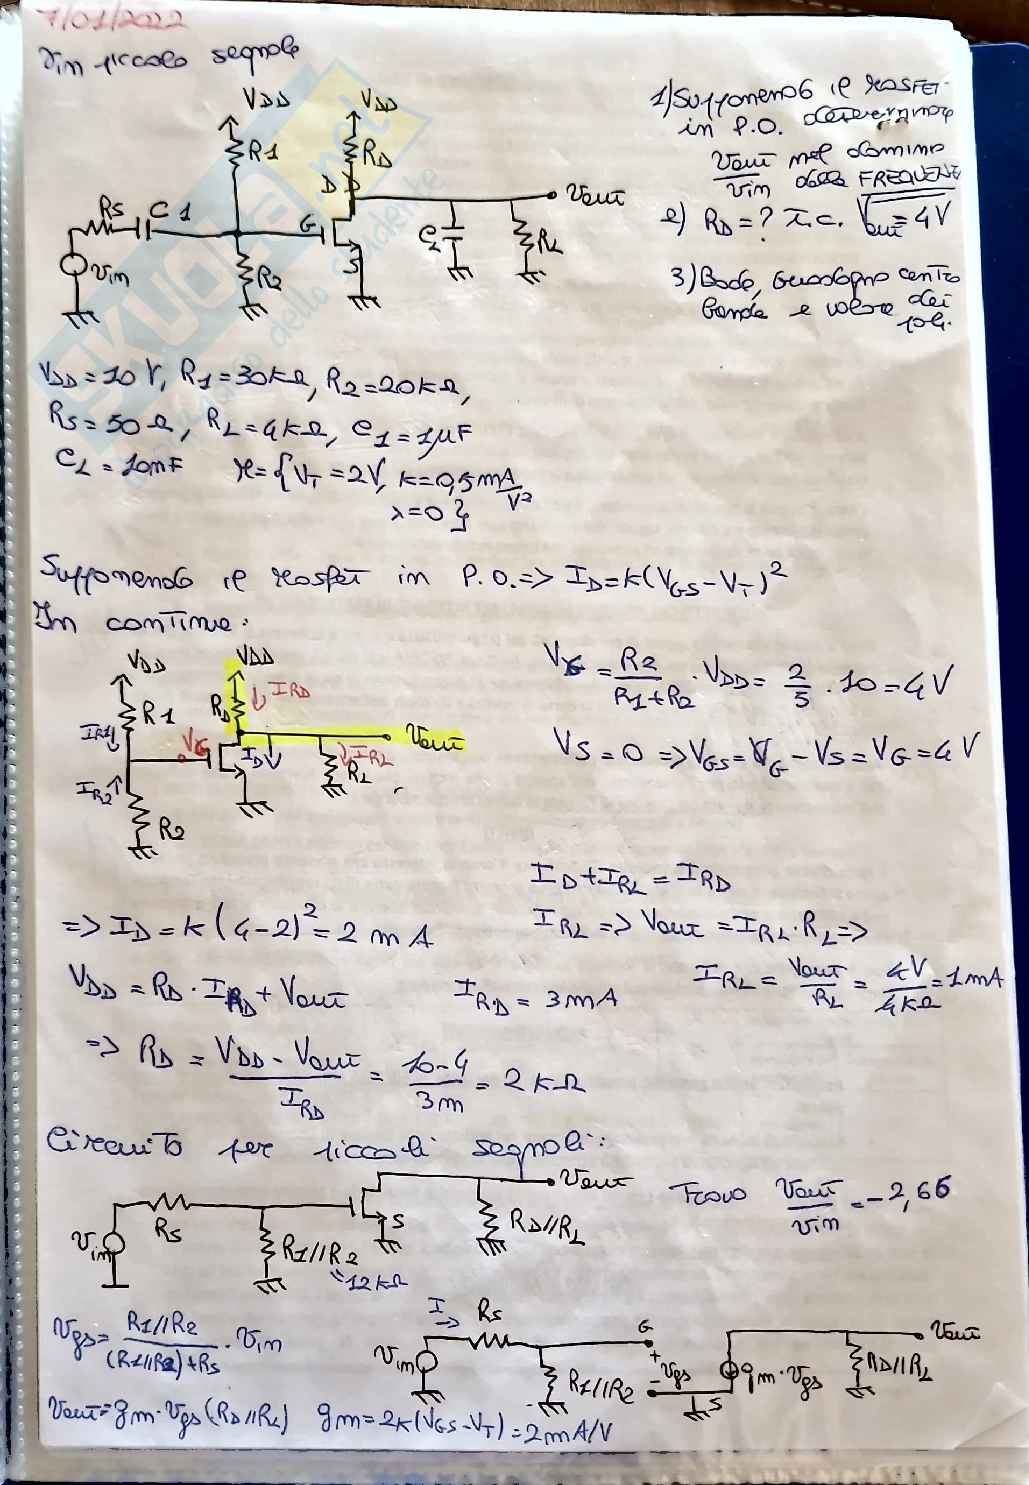 7/01/2022
Vin piccolo segnale
VDD VDD
R1 RD
D
Rs C1 G Vout
Vin R2 S CL RL
1) Supponendo il Mosfet
in P.O. determinare
Vout/Vin nel dominio
della FREQUENZA
2) RD = ? T.c. Vout = 4V
3) Bode, Guadagno centro
banda e valore dei
poli.
VDD = 10 V, R1 = 30KΩ, R2 = 20KΩ,
Rs = 50 Ω, RL = 4KΩ, C1 = 1μF
CL = 10nF M = {VT = 2V, K = 0,5 mA/V²
λ = 0}
Supponendo il Mosfet in P.O. => ID = K(VGS - VT)²
In continua:
VDD VDD
R1 RD IRD
IR1 VG ID Vout
IR2 RL IRL
R2
VG = R2/(R1+R2) · VDD = 2/5 · 10 = 4V
VS = 0 => VGS = VG - VS = VG = 4V
ID + IRL = IRD
=> ID = K(4-2)² = 2 mA
IRL => Vout = IRL · RL =>
IRL = Vout/RL = 4V/4KΩ = 1mA
VDD = RD · IRD + Vout IRD = 3mA
=> RD = (VDD - Vout)/IRD = (10-4)/3m = 2KΩ
Circuito per piccoli segnali:
Vin Rs R1//R2 S Vout RD//RL
=12KΩ
Trovo Vout/Vin = -2,66
Vgs = R1//R2/((R1//R2)+Rs) · Vin
I Rs G Vout
Vin R1//R2 + Vgs - gm·Vgs RD//RL
S
Vout = gm · Vgs (RD//RL) gm = 2K(VGS - VT) = 2mA/V